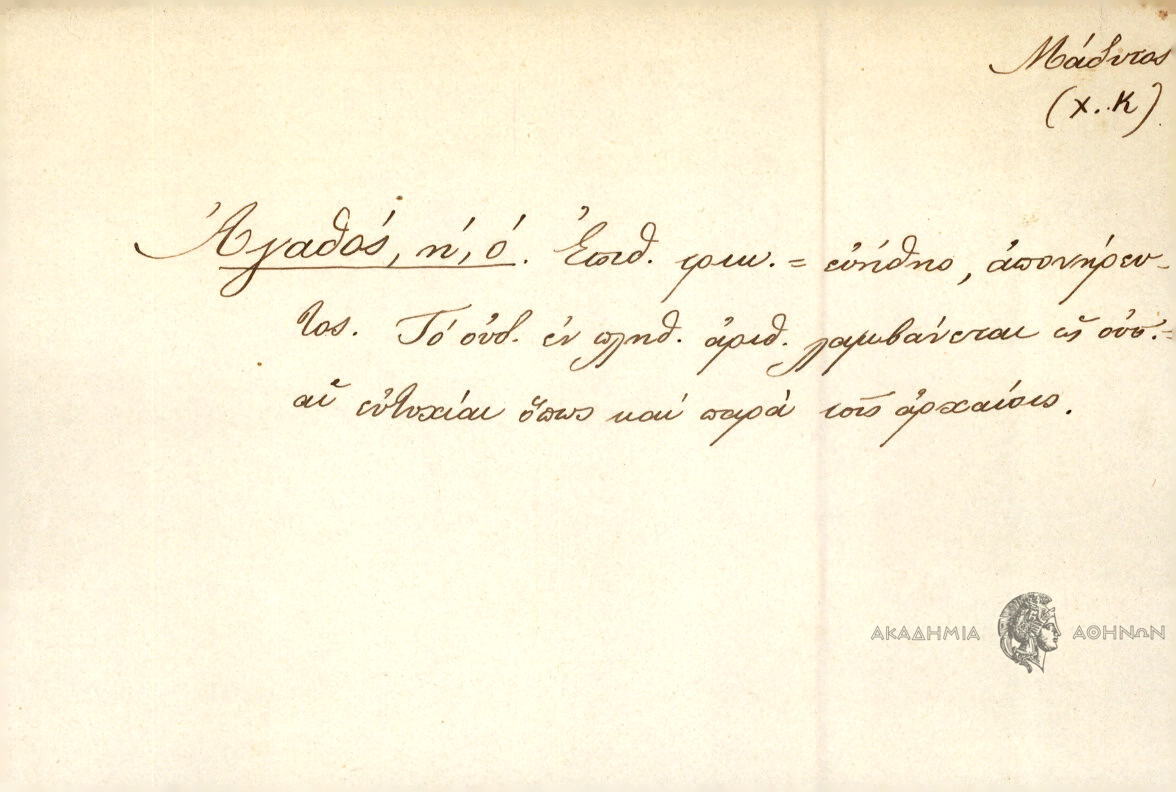 Μάδυτος
(χ. κ)
Ἀγαθός, ή, ό. Ἐπιθ. τρικ. = εὐήθης, ἀπονήρευ-
τος. Τό οὐδ. ἐν πληθ. ἀριθ. λαμβάνεται ὡς οὐσ. =
αἱ εὐτυχίαι ὅπως καί παρά τοῖς ἀρχαίοις.
ΑΚΑΔΗΜΙΑ ΑΘΗΝΩΝ